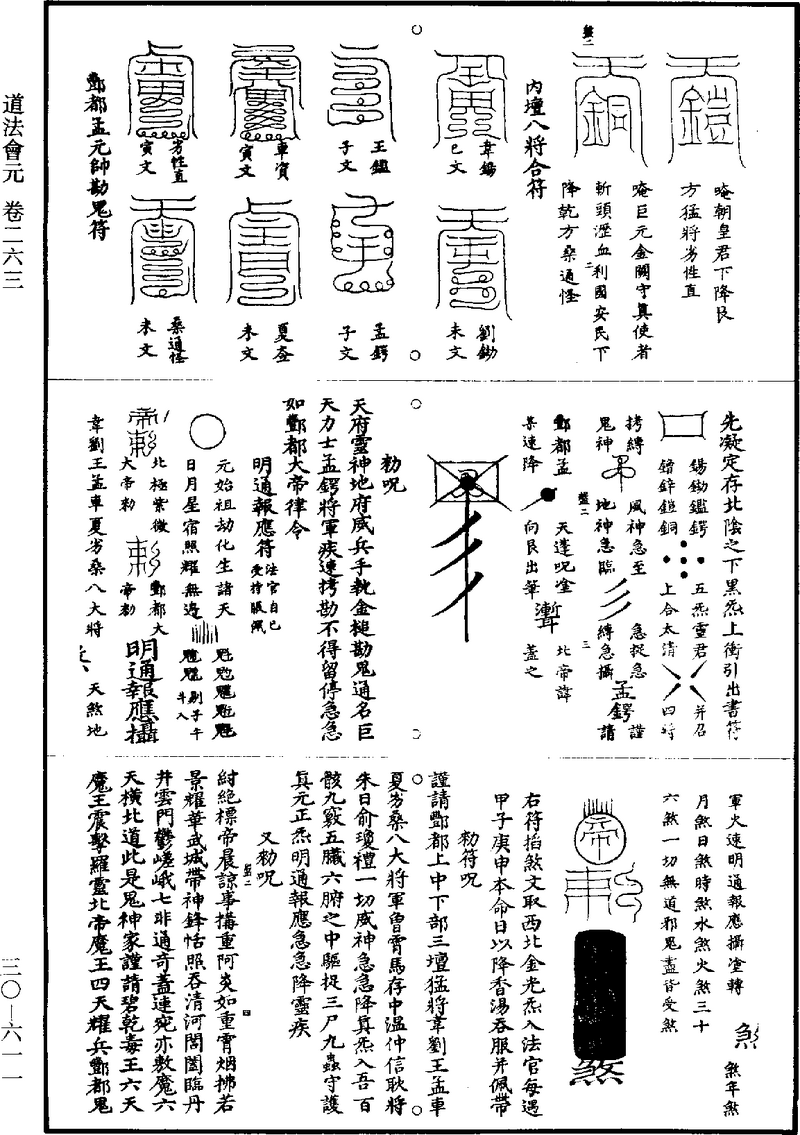 道法會元 卷二六三
三〇—六一一
唵朝皇君下降艮
方猛將劣性直
唵巨元金闕守真使者
斬頭瀝血利國安民下
降乾方桑通怪
內壇八將合符
韋錫
巳文
劉鋤
未文
王鑑
子文
孟鍔
子文
車資
寅文
夏奎
未文
劣性直
寅文
桑通怪
未文
酆都孟元帥勘鬼符
先凝定存北陰之下黑炁上衝引出書符
錫鋤鑑鍔
鎧銅
五炁靈君
上合太清
并召
四將
拷縛
鬼神
風神急至
地神急臨
急捉急
縛急攝
謹
請
孟鍔
酆都孟
某速降
天蓬呪塗
向艮出筆
北帝諱
蓋之
勑呪
天府靈神地府威兵手執金槌勘鬼通名巨
天力士孟鍔將軍疾速拷勘不得留停急急
如酆都大帝律令
明通報應符
法官自已
受持服佩
元始祖劫化生諸天
日月星宿照耀無邊
北極紫微
大帝勑
酆都大
帝勑
明通報應攝
韋劉王孟車夏劣桑八大將
天煞地
軍火速明通報應攝塗轉
煞年煞
月煞日煞時煞水煞火煞三十
六煞一切無道邪鬼盡皆受煞
煞
右符掐煞文取西北金光炁入法官每遇
甲子庚申本命日以降香湯吞服并佩帶
勑符呪
謹請酆都上中下部三壇猛將韋劉王孟車
夏劣桑八大將軍曾霄馬存中溫仲信耿將
朱日俞瓊禮一切威神急急降真炁入吾百
骸九竅五臟六腑之中驅捉三尸九蟲守護
真元正炁明通報應急急降靈疾
又勑呪
紂絕標帝晨諒事構重阿炎如重霄烟拂若
景耀華武城帶神鋒恬照吞清河閶闔臨丹
井雲門鬱嵯峨七非通奇蓋連宛亦敷魔六
天橫北道此是鬼神家謹請碧乾毒王六天
魔王震擊羅靈北帝魔王四天耀兵酆都鬼